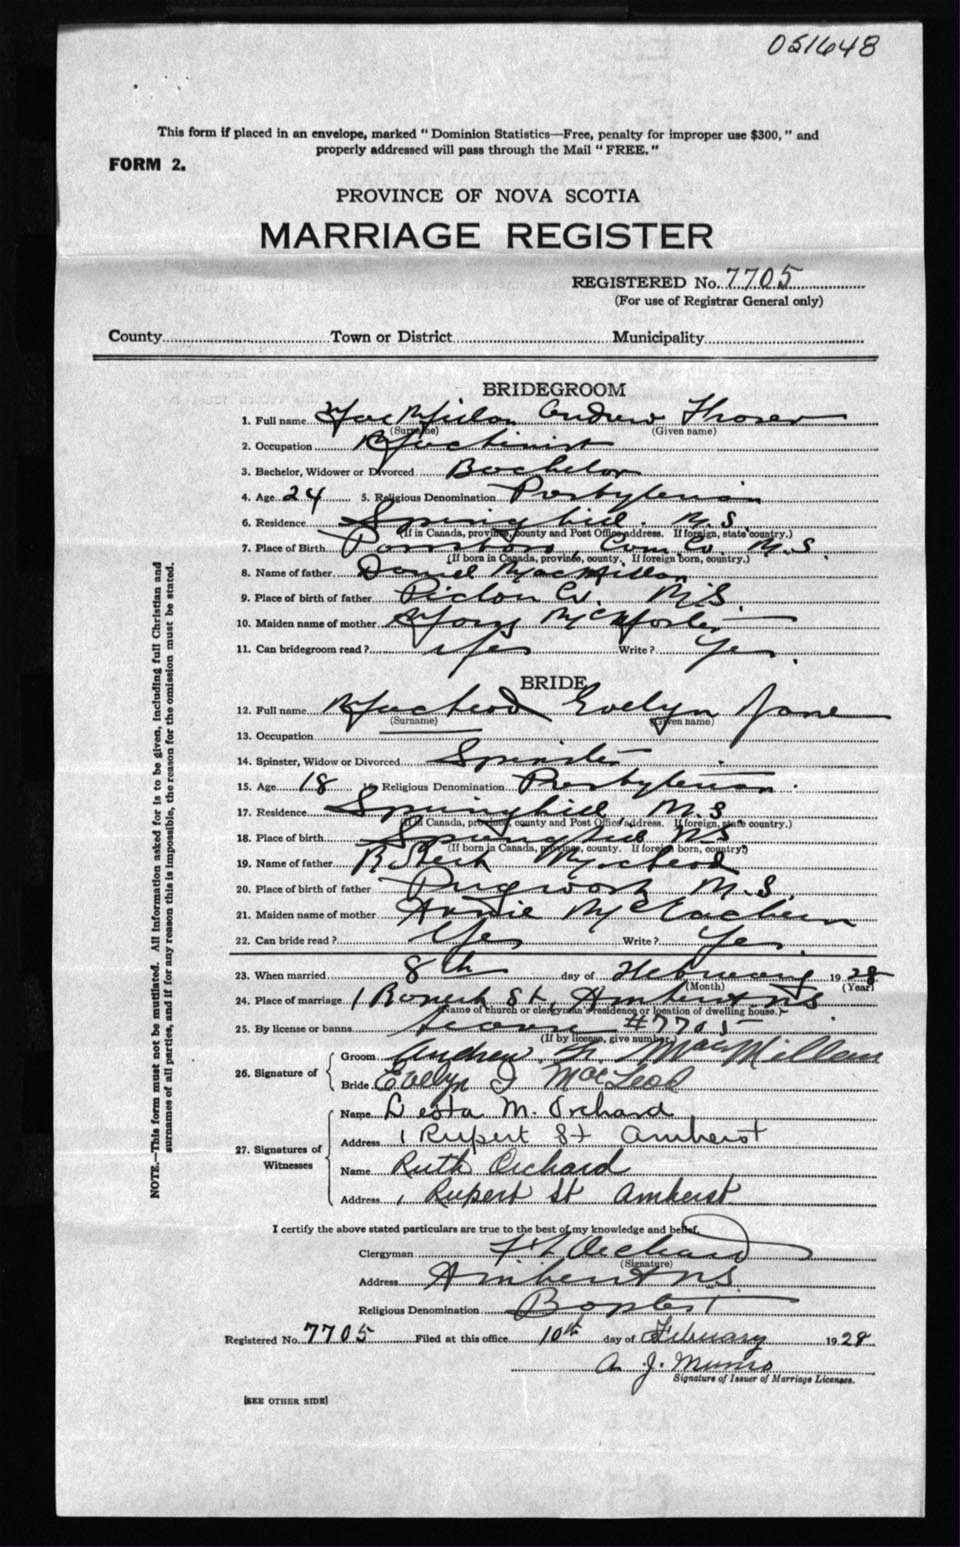 051648
This form if placed in an envelope, marked "Dominion Statistics—Free, penalty for improper use $300," and
properly addressed will pass through the Mail "FREE."
FORM 2.
PROVINCE OF NOVA SCOTIA
MARRIAGE REGISTER
REGISTERED No. 7705
(For use of Registrar General only)
County Town or District Municipality
BRIDEGROOM
1. Full name MacMillan Andrew
(Surname) (Given name)
2. Occupation Machinist
3. Bachelor, Widower or Divorced Bachelor
4. Age 24 5. Religious Denomination Presbyterian
6. Residence Springhill. N.S.
(If in Canada, province, county and Post Office address. If foreign, state country.)
7. Place of Birth Parrsboro Cum. Co. N.S.
(If born in Canada, province, county. If foreign born, country.)
8. Name of father Daniel MacMillan
9. Place of birth of father Pictou Co. N.S.
10. Maiden name of mother
11. Can bridegroom read? Yes Write? Yes.
BRIDE
12. Full name MacLeod Evelyn Jane
(Surname) (Given name)
13. Occupation
14. Spinster, Widow or Divorced Spinster
15. Age 18 16. Religious Denomination Presbyterian.
17. Residence Springhill N.S.
(If in Canada, province, county and Post Office address. If foreign, state country.)
18. Place of birth Springhill N.S.
(If born in Canada, province, county. If foreign born, country.)
19. Name of father Robert MacLeod
20. Place of birth of father Pugwash N.S.
21. Maiden name of mother Annie McEachern
22. Can bride read? Yes Write? Yes.
23. When married 8th day of February 1928
(Month) (Year)
24. Place of marriage 1 Rupert St. Amherst N.S.
(Name of church or clergyman's residence or location of dwelling house.)
25. By license or banns License #7705
(If by license, give number.)
26. Signature of
Groom Andrew F. MacMillan
Bride Evelyn J MacLeod
27. Signatures of Witnesses
Name Desta M. Orchard
Address 1 Rupert St Amherst
Name Ruth Orchard
Address 1 Rupert St Amherst
I certify the above stated particulars are true to the best of my knowledge and belief.
Clergyman Orchard
(Signature)
Address Amherst N.S.
Religious Denomination Baptist
Registered No. 7705 Filed at this office 10th day of February 1928
A. J. Munro
Signature of Issuer of Marriage Licenses.
[SEE OTHER SIDE]
NOTE.—This form must not be mutilated. All information asked for is to be given, including full Christian and
surnames of all parties, and if for any reason this is impossible, the reason for the omission must be stated.